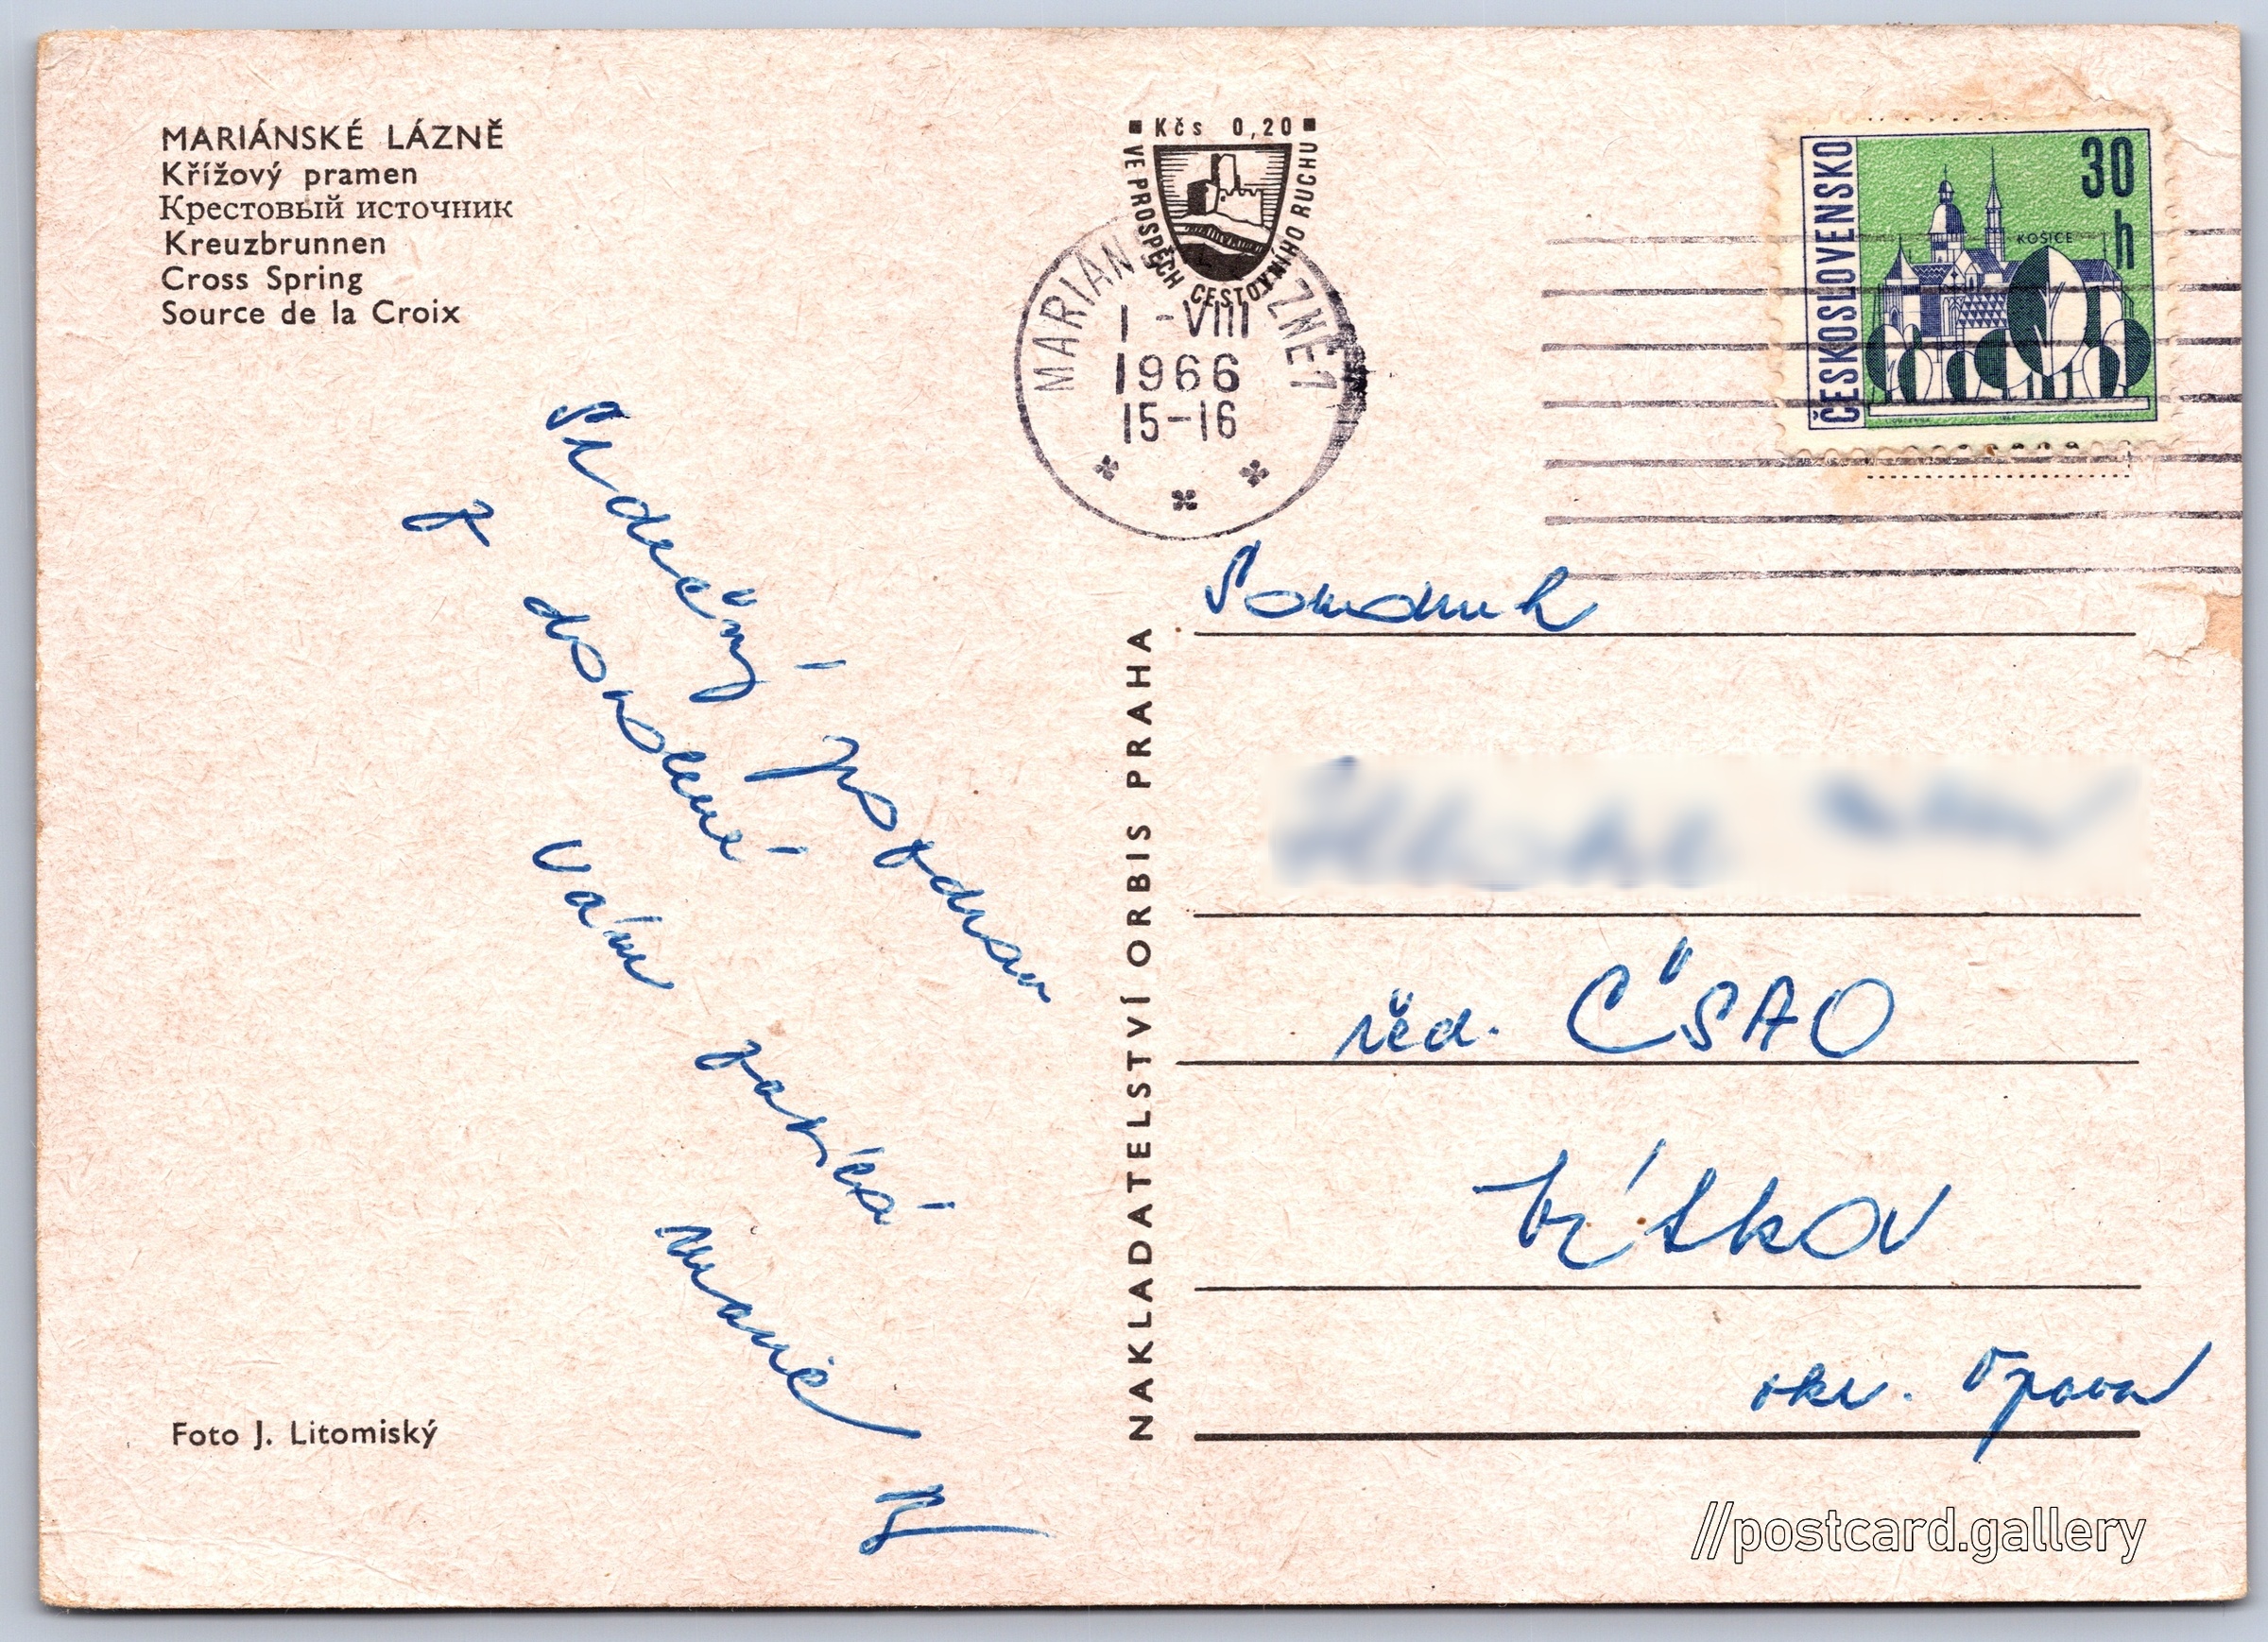 MARIÁNSKÉ LÁZNĚ
Křížový pramen
Крестовый источник
Kreuzbrunnen
Cross Spring
Source de la Croix
Kčs 0,20
VE PROSPĚCH CESTOVNÍHO RUCHU
MARIÁN ZNĚ 1
1 -VIII
1966
15-16
ČESKOSLOVENSKO
30
h
KOŠICE
Srdečný pozdrav
z dovolené
Vám zasílá
Foto J. Litomiský
NAKLADATELSTVÍ ORBIS PRAHA
Soudruh
řed. ČSAO
Vítkov
okr. Opava
//postcard.gallery